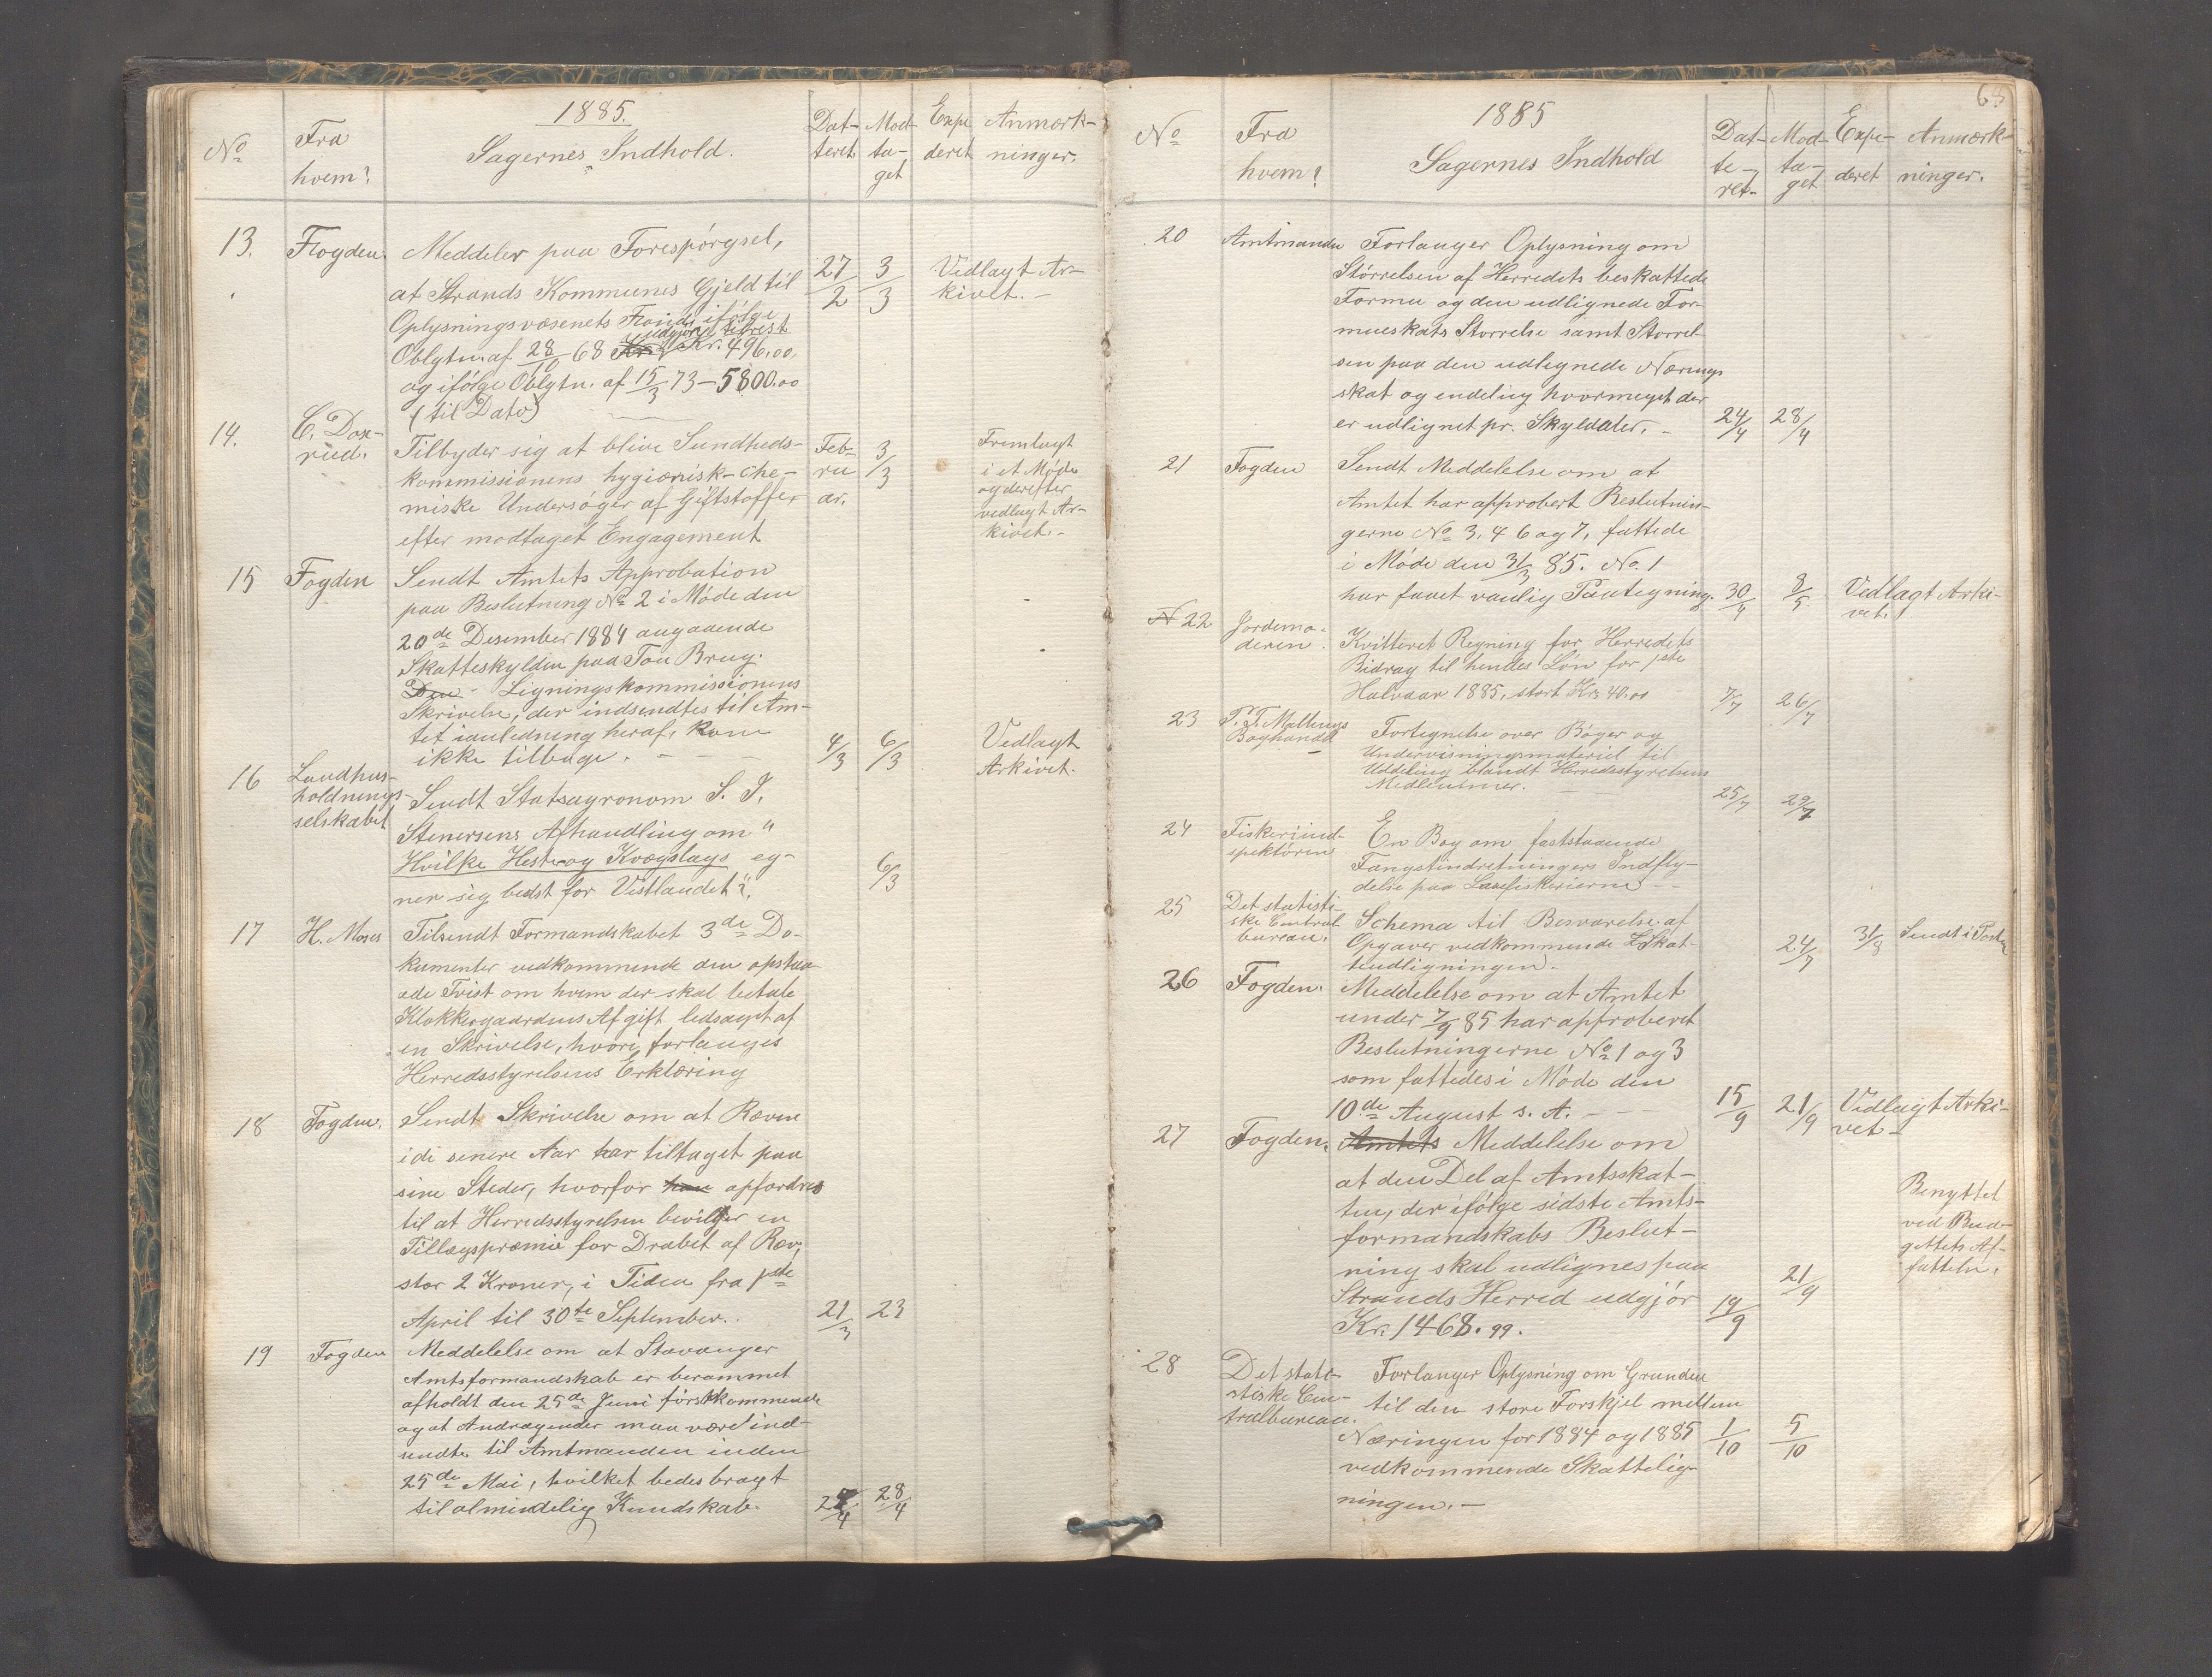 1885.
No Fra hvem? Sagernes Indhold. Dat- teret. Mod- ta- get Expe deret Anmærk- ninger.
13. Fogden. Meddeler paa Forespørgsel,
at Strands Kommunes Gjeld til
Oplysningsvæsenets Fond ifølge
udgjør tilrest
Oblgtn. af 28/10 68 Kr. 496.00,
og ifølge Oblgtn. af 15/3 73 — 5800.00
(til Dato)
27/2 3/3 Vedlagt Ar-
kivet. —
14. C. Dox-
rud.
Tilbyder sig at blive Sundheds-
kommissionens hygiænisk-che-
miske Undersøger af Giftstoffer
efter modtaget Engagement
Feb-
ru
ar.
3/3
Fremlagt
i et Møde
og derefter
vedlagt Ar-
kivet. -
15 Fogden Sendt Amtets Approbation
paa Beslutning No 2 i Møde den
20de Desember 1884 angaaende
Skatteskylden paa Tou Brug.
Den - Ligningskommissionens
Skrivelse, der indsendtes til Am-
tet ianledning heraf, kom
ikke tilbage. - - -
4/3 6/3 Vedlagt
Arkivet.
16 Landhus-
holdnings-
selskabet
Sendt Statsagronom S. J.
Stenersens Afhandling om "
Hvilke Heste og Kvægslags eg-
ner sig bedst for Vestlandet"?,
6/3
17 H. Moses Tilsendt Formandskabet 3de Do-
kumenter vedkommende den opstaa-
ede Tvist om hvem der skal betale
Klokkergaardens Afgift ledsaget af
en Skrivelse, hvori forlanges
Herredsstyrelsens Erklæring
18 Fogden. Sendt Skrivelse om at Rævne
i de senere Aar har tiltaget paa
sine Steder, hvorfor han opfordres
til at Herredsstyrelsen bevilger en
Tillægspræmie for Drabet af Ræv,
stor 2 Kroner, i Tiden fra 1ste
April til 30te September..
21/3 23
19 Fogden Meddelelse om at Stavanger
Amtsformandskab er berammet
afholdt den 25de Juni førstkommende
og at Andragender maa være ind-
sendte til Amtmanden inden
25de Mai, hvilket bedes bragt
til almindelig Kundskab.
28/4
68
1885
No Fra hvem? Sagernes Indhold Dat- te- ret- Mod- ta- get Expe- deret Anmærk- ninger.
20 Amtmanden Forlanger Oplysning om
Størrelsen af Herredets beskattede
Formue og den udlignede For-
mueskats Størrelse samt Størrel-
sen paa den udlignede Nærings
skat og endelig hvormeget der
er udlignet pr. Skylddaler. -
24/4 28/4
21 Fogden Sendt Meddelelse om at
Amtet har approbert Beslutnin-
gerne No 3, 4 6 og 7, fattede
i Møde den 31/3 85. No. 1
har faaet vanlig Paategning.
30/4 8/5 Vedlagt Arki-
vet.
N 22 Jordemo-
deren.
Kvitteret Regning for Herredets
Bidrag til hendes Løn for 1ste
Halvaar 1885, stort Kr. 40.00
7/7 26/7
23 P. T. Mallings
Boghandel
Fortegnelse over Bøger og
Undervisningsmateriel til
Uddeling blandt Herredsstyrelsens
Medlemmer.
25/7 29/7
24 Fiskeriind-
spektøren
En Bog om faststaaende
Fangstindretningers Indfly-
delse paa Laxefiskerierne - -
25 Det statisti-
ske Central
bureau.
Schema til Besvarelse af
Opgaver vedkommende Skat-
teudligningen.
24/7 31/8 Sendt i Posten
26 Fogden. Meddelelse om at Amtet
under 7/9 85 har approberet
Beslutningerne No 1 og 3
som fattedes i Møde den
10de August s. A. - -
15/9 21/9 Vedlagt Arki-
vet -
27 Fogden. Amtets Meddelelse om
at den Del af Amtsskat-
ten, der ifølge sidste Amts-
formandskabs Beslut-
ning skal udlignes paa
Strands Herred udgjør
Kr. 1468.99.
19/9 21/9
Benyttet
ved Bud-
gettets Af-
fattelse.
28 Det stati-
stiske Cen-
tralbureau.
Forlanger Oplysning om Grunden
til den store Forskjel mellem
Næringen for 1884 og 1885
vedkommende Skattelig-
ningen. —
1/10 5/10